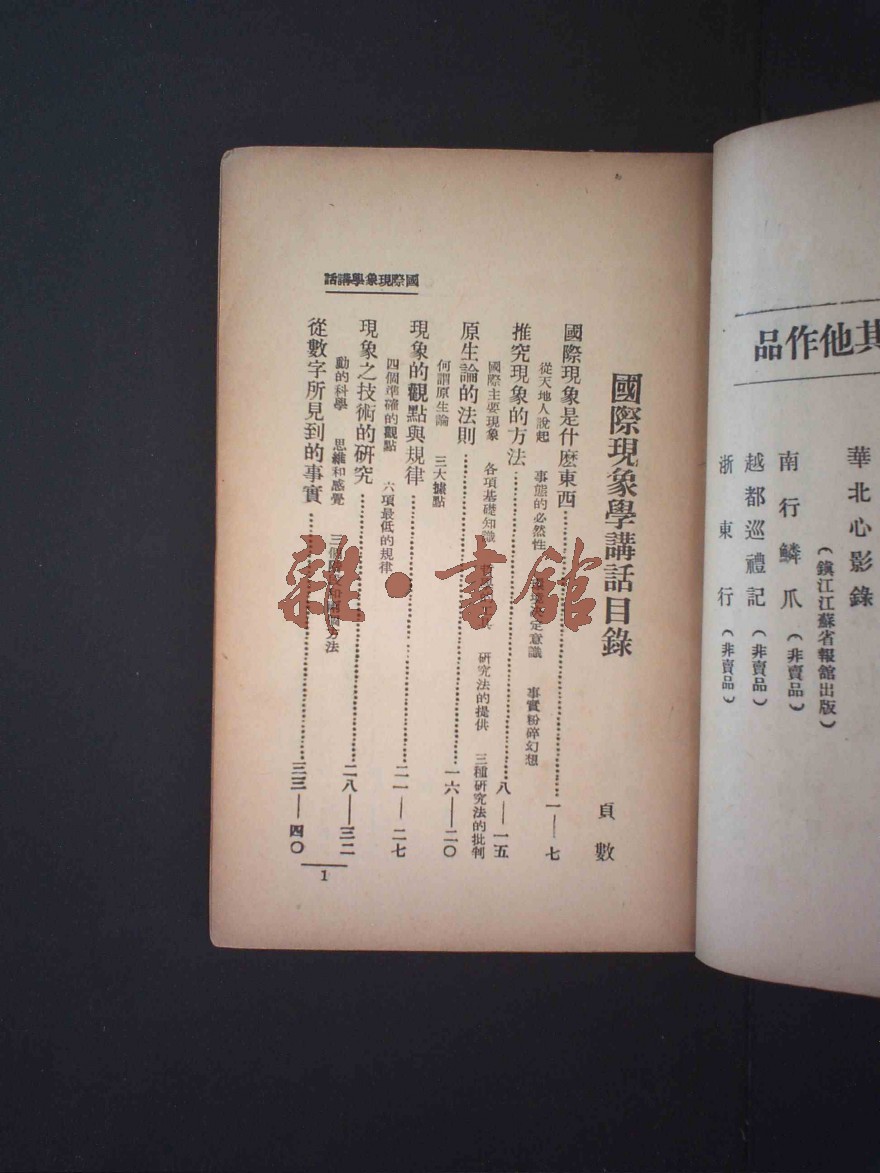 其他作品
華北心影錄
(鎮江江蘇省報館出版)
南行鱗爪(非賣品)
越都巡禮記(非賣品)
浙東行(非賣品)
國際現象學講話
國際現象學講話目錄
頁數
國際現象是什麽東西……一——七
從天地人說起 事態的必然性 定意識 事實粉碎幻想
推究現象的方法……八——一五
國際主要現象 各項基礎知識 研究法的提供 三種研究法的批判
原生論的法則……一六——二〇
何謂原生論 三大據點
現象的觀點與規律……二一——二七
四個準確的觀點 六項最低的規律
現象之技術的研究……二八——三二
動的科學 思維和感覺 三個 方法
從數字所見到的事實……三三——四〇
1
雜·書館